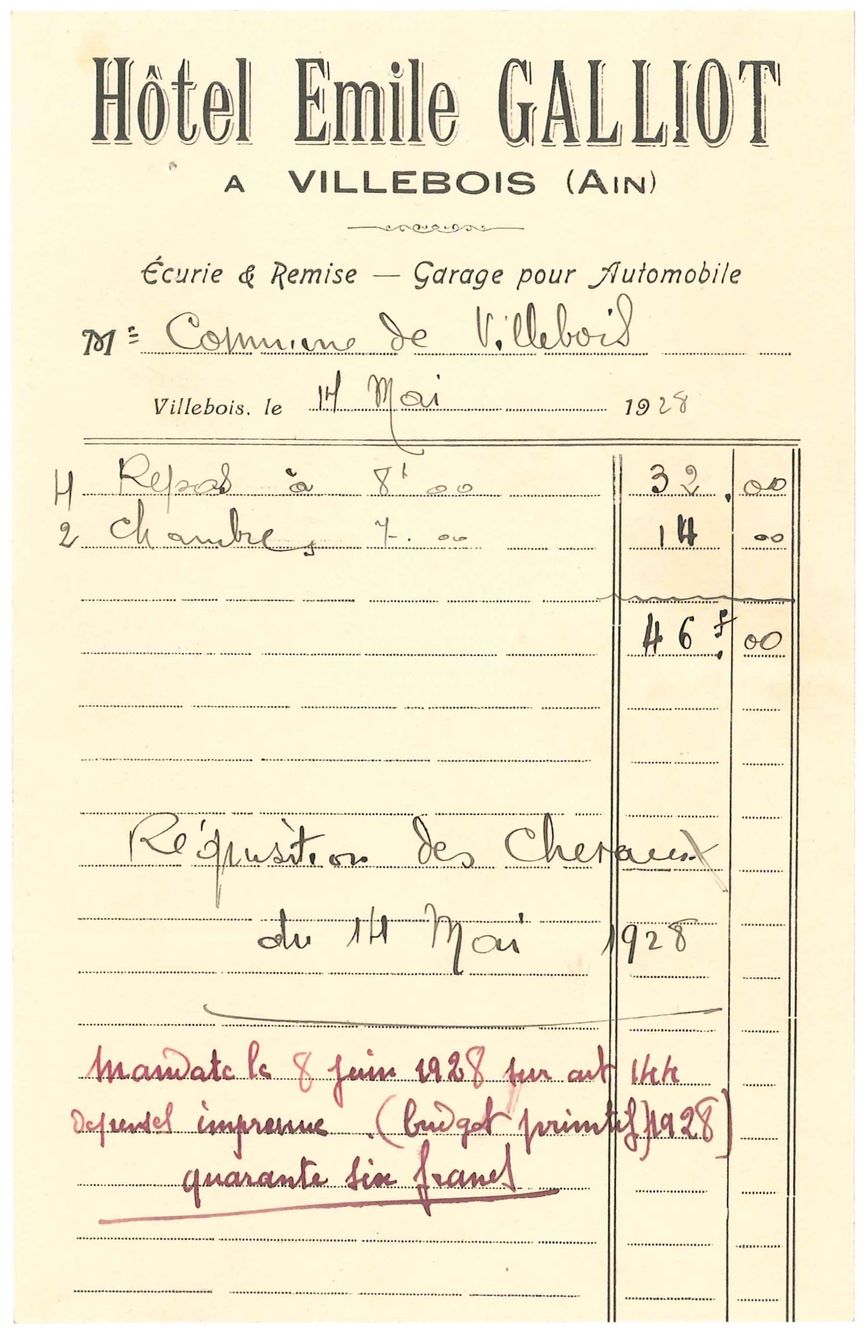 Hôtel Emile GALLIOT
A VILLEBOIS (AIN)
Écurie & Remise — Garage pour Automobile
M Commune de Villebois
Villebois, le 14 Mai 1928
4 Repas à 8f 00 32.00
2 chambres 7. 00 14 00
46f.00
Réquisition des Chevaux
du 14 Mai 1928
Mandate le 8 juin 1928 sur art 144
depenses imprevue (budget primitif 1928)
quarante six francs